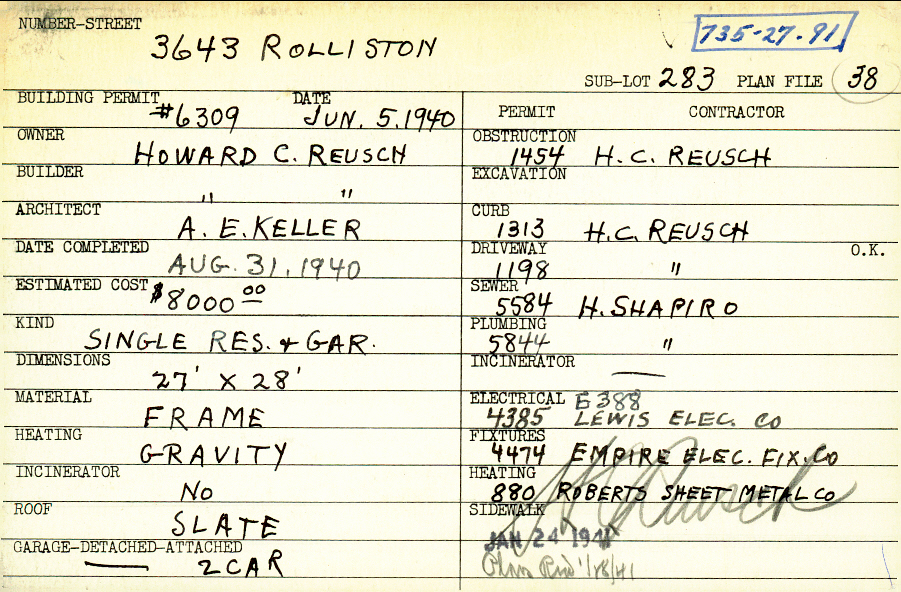 NUMBER-STREET
3643 ROLLISTON
735-27-91
SUB-LOT 283 PLAN FILE 38
BUILDING PERMIT #6309 DATE JUN. 5. 1940
OWNER HOWARD C. REUSCH
BUILDER " "
ARCHITECT A. E. KELLER
DATE COMPLETED AUG. 31, 1940
ESTIMATED COST $8000 00
KIND SINGLE RES. + GAR.
DIMENSIONS 27' X 28'
MATERIAL FRAME
HEATING GRAVITY
INCINERATOR NO
ROOF SLATE
GARAGE-DETACHED-ATTACHED — 2 CAR
PERMIT CONTRACTOR
OBSTRUCTION 1454 H. C. REUSCH
EXCAVATION
CURB 1313 H.C. REUSCH
DRIVEWAY 1198 " O.K.
SEWER 5584 H. SHAPIRO
PLUMBING 5844 "
INCINERATOR —
ELECTRICAL E388
4385 LEWIS ELEC. CO
FIXTURES 4474 EMPIRE ELEC. FIX. CO
HEATING 880 ROBERTS SHEET METAL CO
SIDEWALK
JAN 24 1941